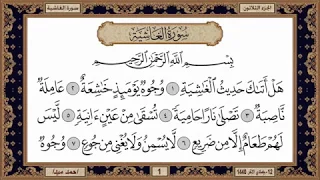 الجزء الثلاثون
سورة الغاشية
سُورَةُ الغَاشِيَةِ
بِسْمِ اللَّهِ الرَّحْمَٰنِ الرَّحِيمِ
هَلْ أَتَىٰكَ حَدِيثُ الْغَٰشِيَةِ ١ وُجُوهٌ يَوْمَئِذٍ خَٰشِعَةٌ ٢ عَامِلَةٌ
نَّاصِبَةٌ ٣ تَصْلَىٰ نَارًا حَامِيَةً ٤ تُسْقَىٰ مِنْ عَيْنٍ ءَانِيَةٍ ٥ لَّيْسَ
لَهُمْ طَعَامٌ إِلَّا مِن ضَرِيعٍ ٦ لَّا يُسْمِنُ وَلَا يُغْنِي مِن جُوعٍ ٧ وُجُوهٌ
1